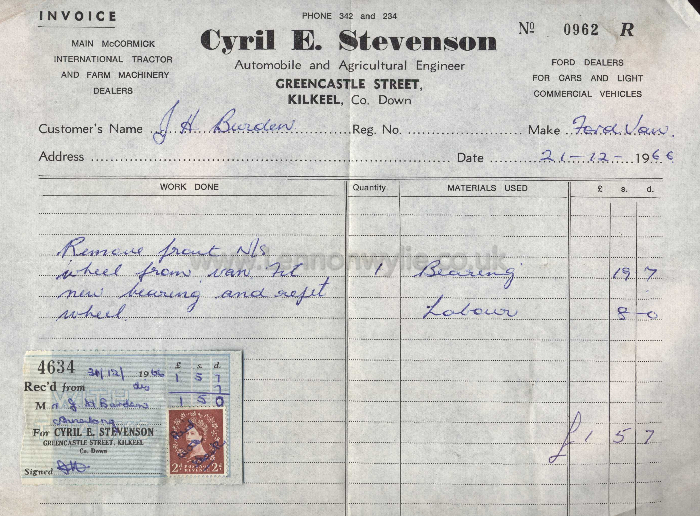 INVOICE
PHONE 342 and 234
Nº 0962 R
Cyril E. Stevenson
MAIN McCORMICK
INTERNATIONAL TRACTOR
AND FARM MACHINERY
DEALERS
Automobile and Agricultural Engineer
GREENCASTLE STREET,
KILKEEL, Co. Down
FORD DEALERS
FOR CARS AND LIGHT
COMMERCIAL VEHICLES
Customer's Name J H Burden Reg. No. Make Ford Van
Address Date 21-12-1966
WORK DONE Quantity MATERIALS USED £ s. d.
Remove front N/S
wheel from van fit 1 Bearing 19 7
new bearing and refit
wheel Labour 8-0
£1 5 7
www.lennonwylie.co.uk
4634
31/12/1966 £ s. d.
Rec'd from 1 5 7
dis 7
Mr J H Burden 1 5 0
Annalong
For CYRIL E. STEVENSON
GREENCASTLE STREET, KILKEEL
Co. Down
Signed
2d 2d